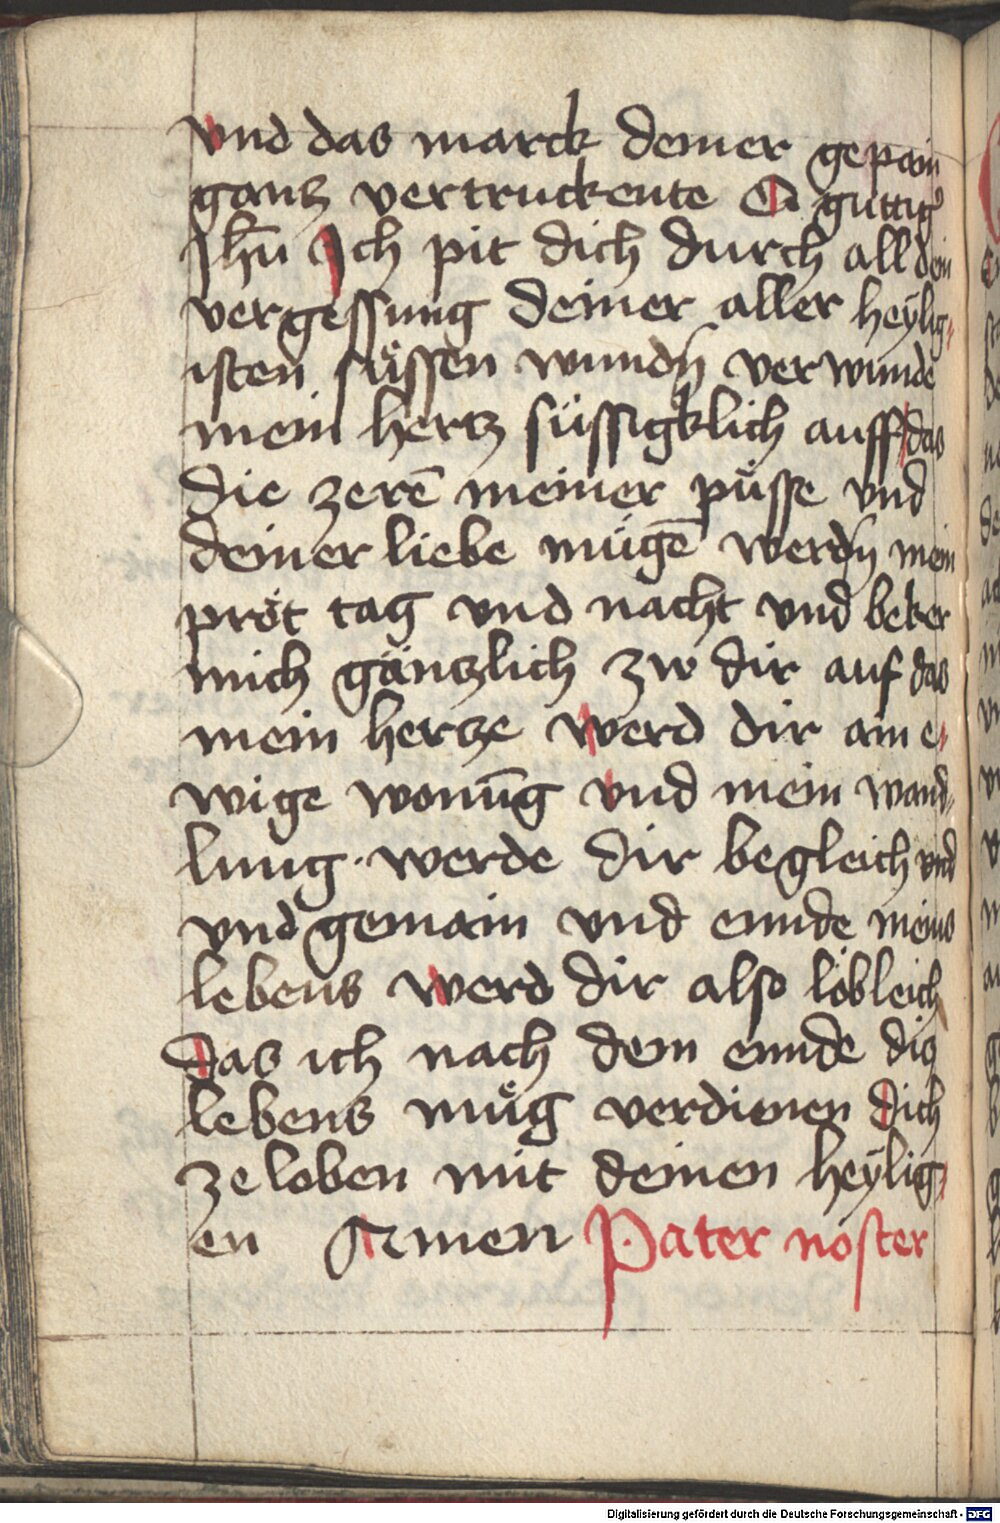 vnd das marck deiner gepain
gantz vertruckente O guttig᷒
Jhū Ich pit dich durch all dein
vergessung deiner aller heÿlig⸗
isten süssen wundn̄ verwunde
mein hertz süssigklich auff das
die zerē meiner půsse vnd
deiner liebe mügē werdn̄ mein
prot tag vnd nacht vnd beker
mich gäntzlich zw dir auf das
mein hertze werd dir ain e⸗
wige wonūg vnd mein wand⸗
lung · werde dir begleich vnd
vnd gemain vnd ennde meins
lebens werd dir also lobleich
das ich nach dem ennde dis
lebens můg verdienen dich
ze loben mit deinen heÿlig⸗
en Amen Pater noster
Digitalisierung gefördert durch die Deutsche Forschungsgemeinschaft - DFG